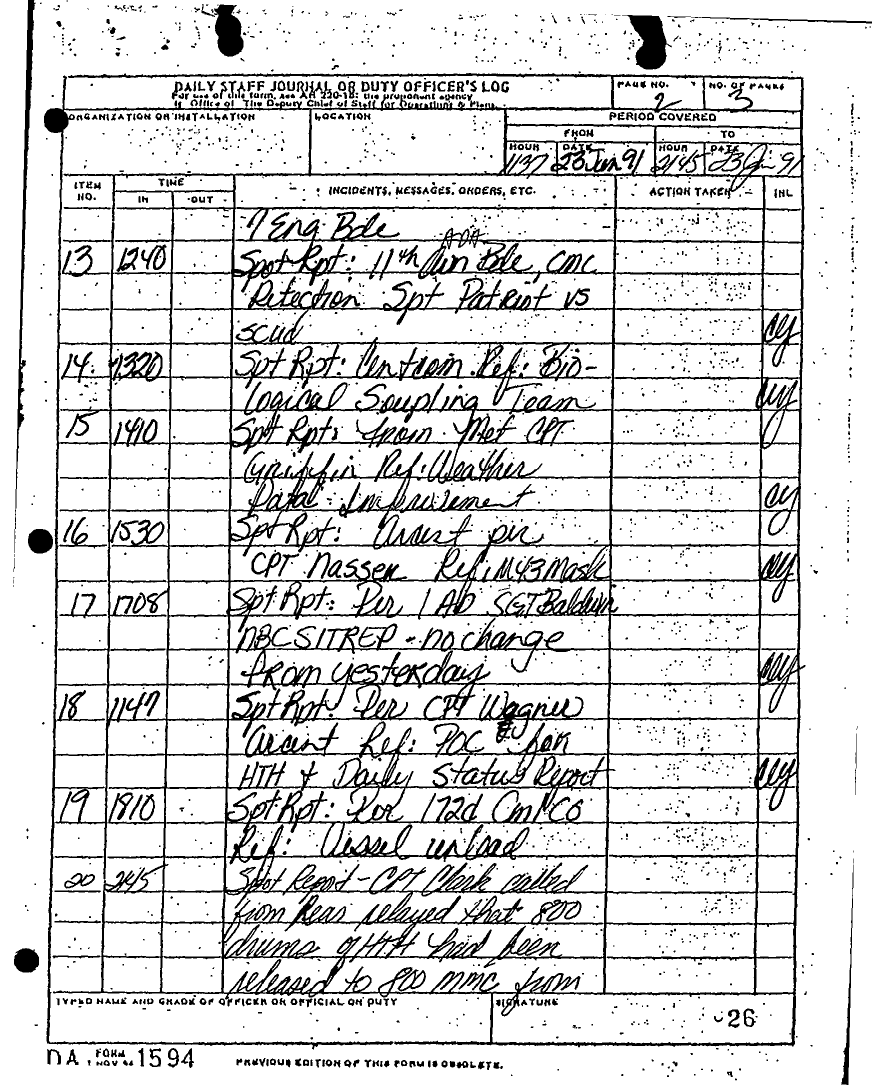 DAILY STAFF JOURNAL OR DUTY OFFICER'S LOG
For use of this form, see AR 220-15: the proponent agency
is Office of The Deputy Chief of Staff for Operations & Plans.
PAGE NO. 2
NO. OF PAGES 3
ORGANIZATION OR INSTALLATION
LOCATION
PERIOD COVERED
FROM TO
HOUR DATE HOUR DATE
1137 23 Jan 91 2145 23 Jan 91
ITEM NO. TIME IN OUT INCIDENTS, MESSAGES, ORDERS, ETC. ACTION TAKEN INL
7 Eng Bde
ADA
13 1240 Spot Rpt: 11th Bde, CMC
Detection Spt Patriot vs
scud cy
14. 1320 Spt Rpt: Centcom Ref: Bio-
logical Soupling Team cy
15 1410 Spt Rpt: from Met CPT
Griffin Ref: Weather
Data Improvement cy
16 1530 Spt Rpt: Arcent per
CPT Nassen Ref: M43 Mask cy
17 1708 Spt Rpt: Per 1 AD SGT Baldwin
NBC SITREP - no change
from yesterday cy
18 1147 Spt Rpt: Per CPT Wagner
Arcent Ref: POC for
HTH & Daily Status Report cy
19 1810 Spt Rpt: Per 172d Cml Co
Ref: Vessel unload
20 2145 Spot Report - CPT Clark called
from Rear relayed that 800
drums of HTH had been
released to 800 MMC from
TYPED NAME AND GRADE OF OFFICER OR OFFICIAL ON DUTY
SIGNATURE
26
DA FORM 1 NOV 1594
PREVIOUS EDITION OF THIS FORM IS OBSOLETE.